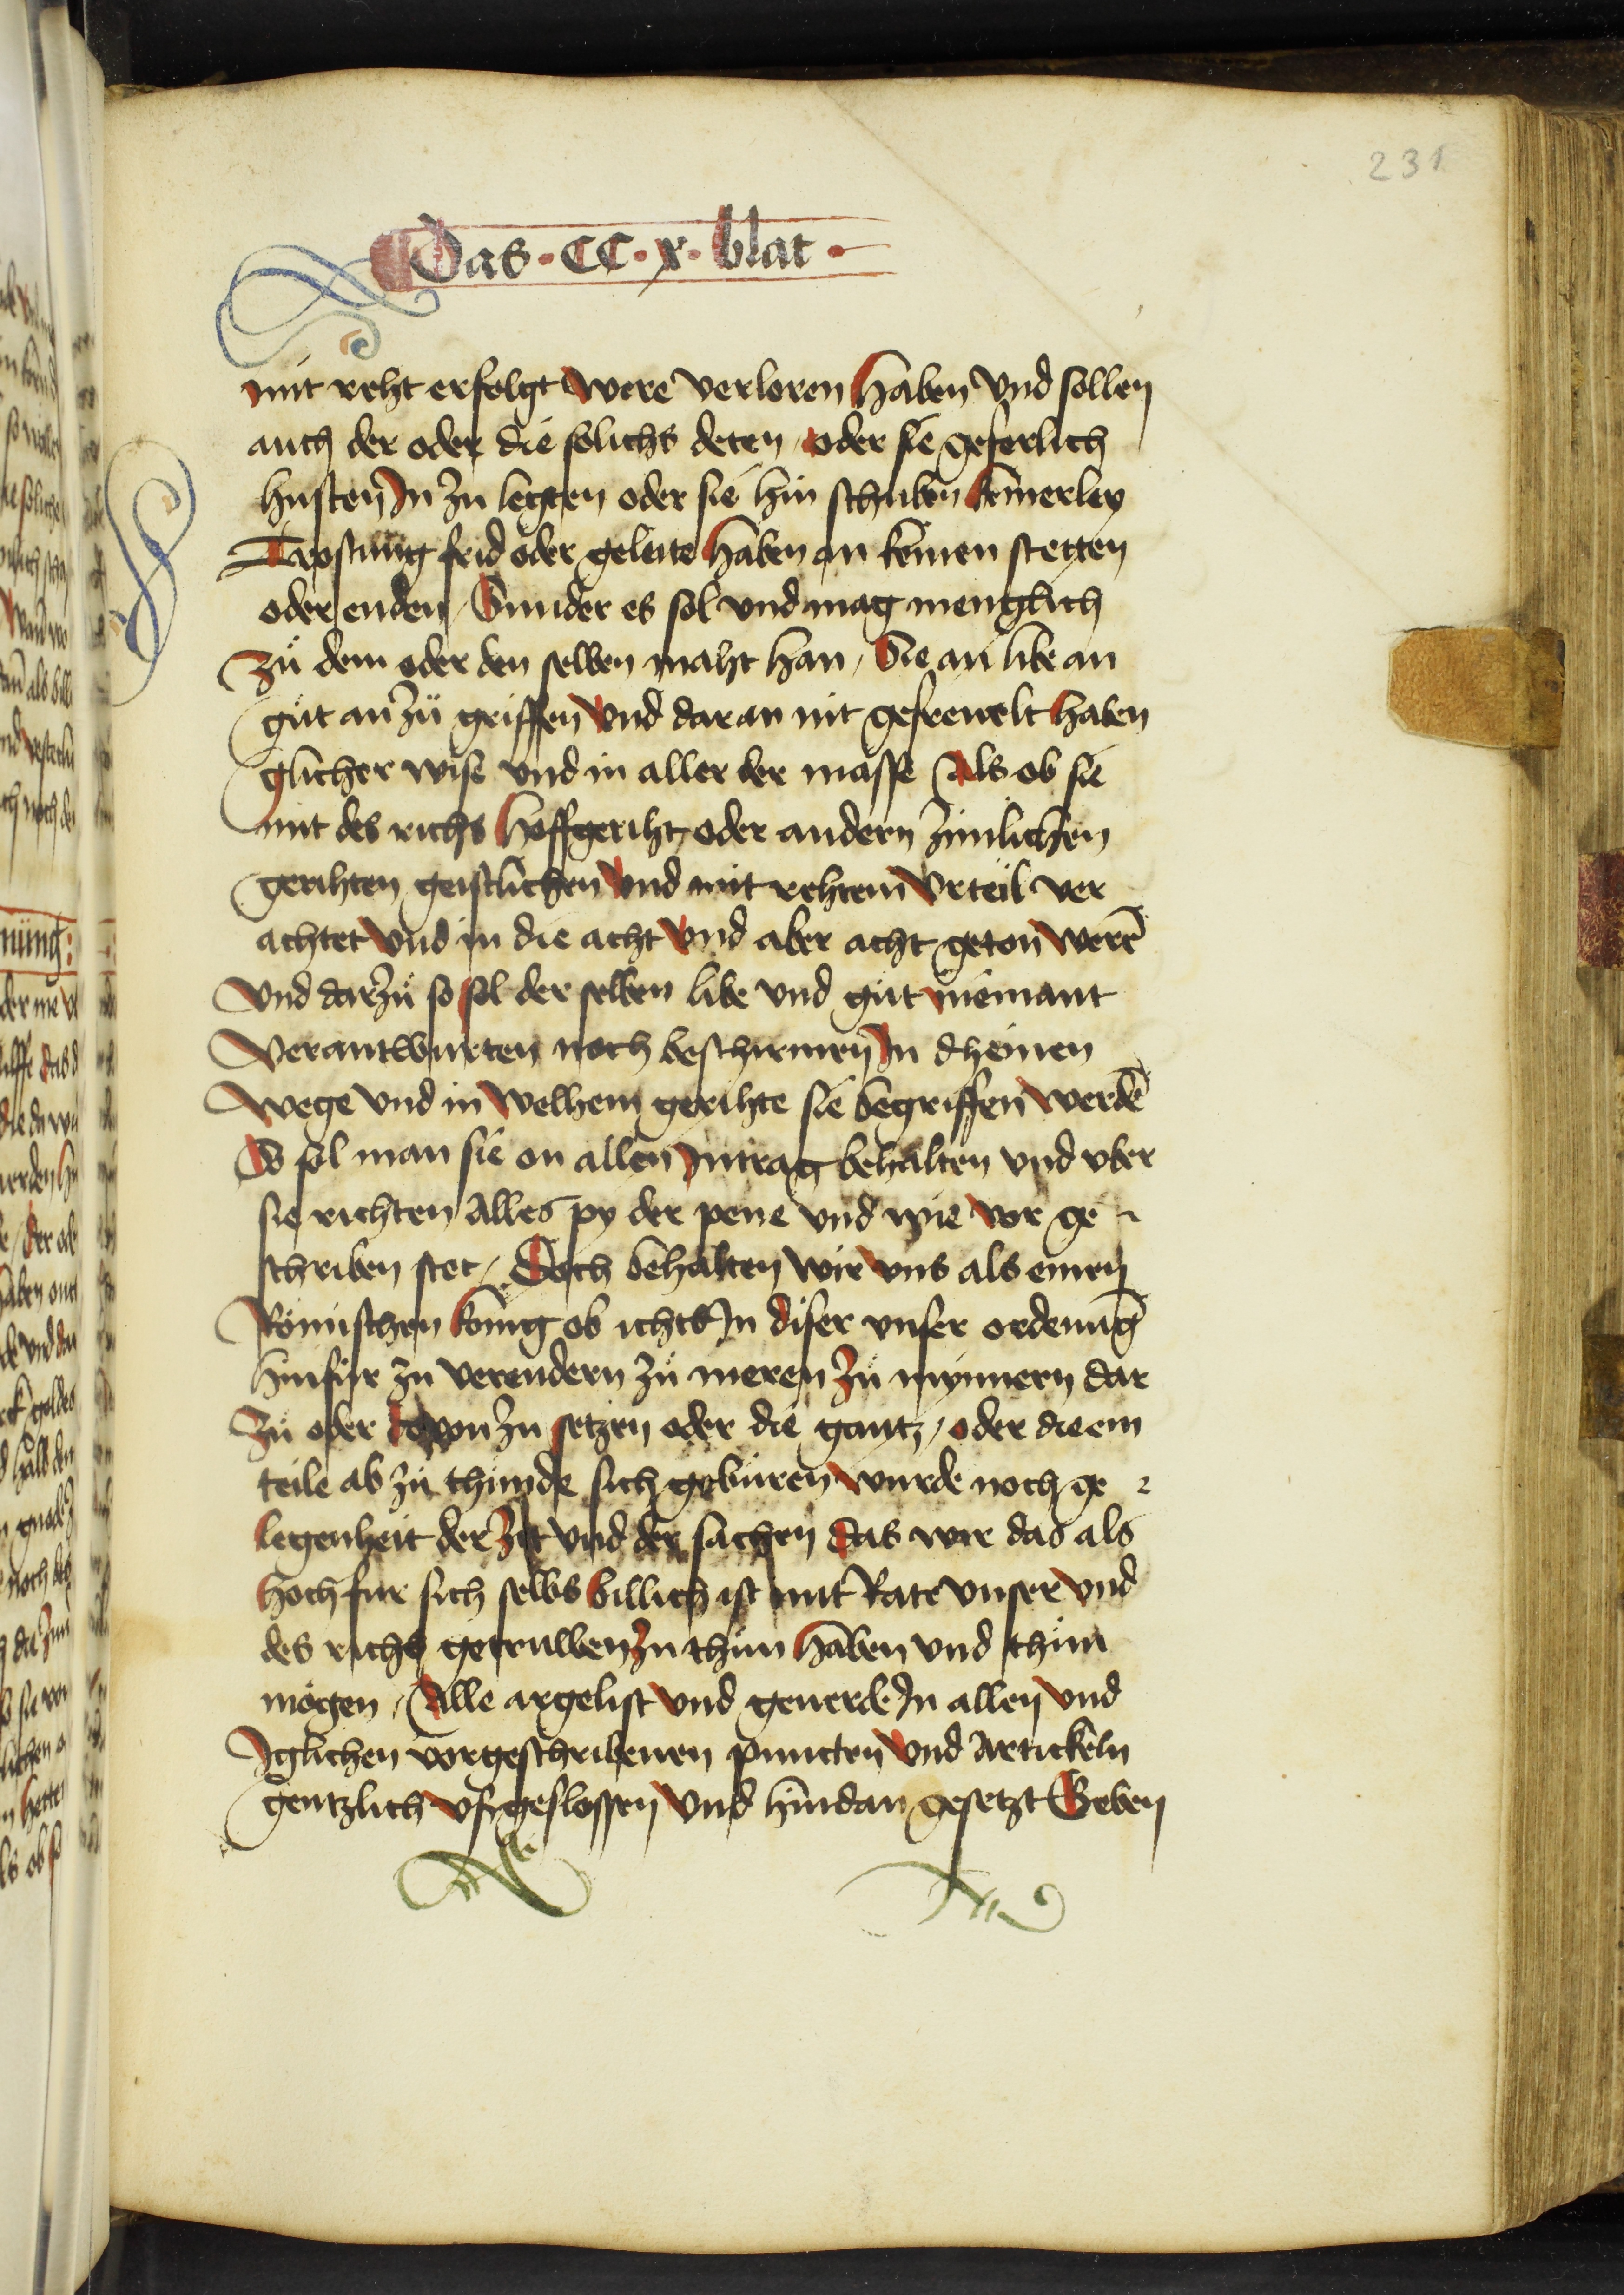 231
Das · CC · x · blat ·
mit reht erfolgt were verloren haben vnd sollen
auch der oder die solichs deten / oder sie geferlich
husten In zu legten oder sie hin schuben keinerley
Trostung frid oder geleite haben an keinen stetten
oder enden / Sunder es sol vnd mag menglich
zů dem oder den selben maht han / Sie an libe an
gůt an zů griffen vnd dar an nit gefreuelt haben
glicher wise vnd in aller der masse Als ob sie
mit des richs hoffgeriht oder andern zimlichen
gerihten geistlichen vnd mit rehtem vrteil ver
achtet vnd in die acht vnd aber acht geton werē
vnd darzů so sol der selben libe vnd gůt niemant
verantwurten noch beschirmen In dheinen
wege vnd in welhem gerihte sie begriffen werdē
So sol man sie on allen Intrag behalten vnd vber
sie richten Alles py der pene vnd wie vor ge
schriben stet / Doch behalten wir vns als einen
Römischen konig ob ichts In diser vnser ordenūg
hinfür zu verendern zů meren zů mynnern dar
zů oder dovon zu setzen oder die gantz / oder die ein
teile ab zů thůnde sich gebüren wurde noch ge
legenheit der zit vnd der sachen das wir das als
hoch fur sich selbs billich ist mit Rate vnser vnd
des richs getruwen zu thůn haben vnd thůn
mögen / Alle argelist vnd geuerde In allen vnd
Iglichen vorgeschribenen puncten vnd Artickeln
gentzlich vßgeslossen vnd hindan gesetzt Geben